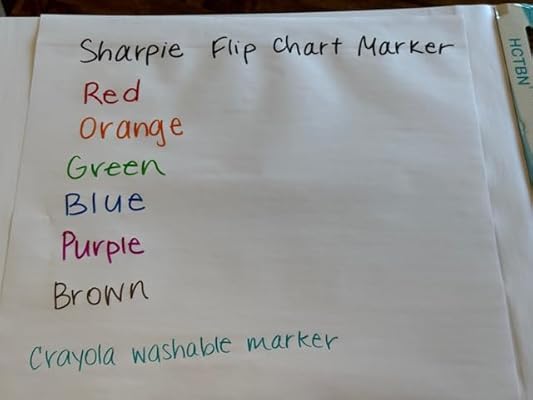 Sharpie Flip Chart Marker
Red
Orange
Green
Blue
Purple
Brown
Crayola washable marker
HCTBN